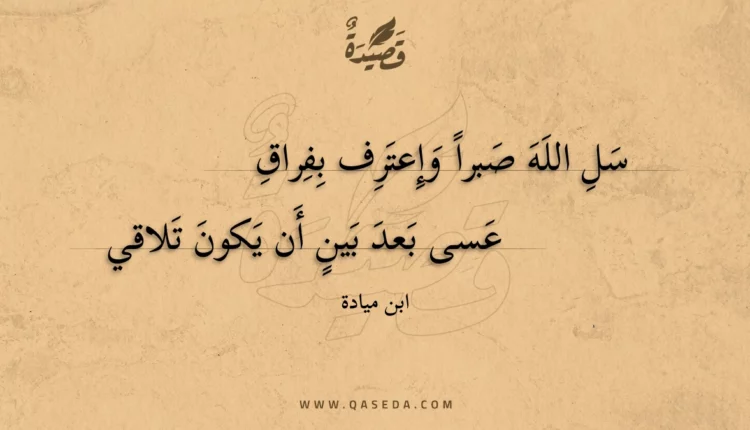 قَصِيْدَةٌ
سَلِ اللَهَ صَبراً وَإِعتَرِف بِفِراقِ
عَسى بَعدَ بَينٍ أَن يَكونَ تَلاقي
ابن ميادة
WWW.QASEDA.COM